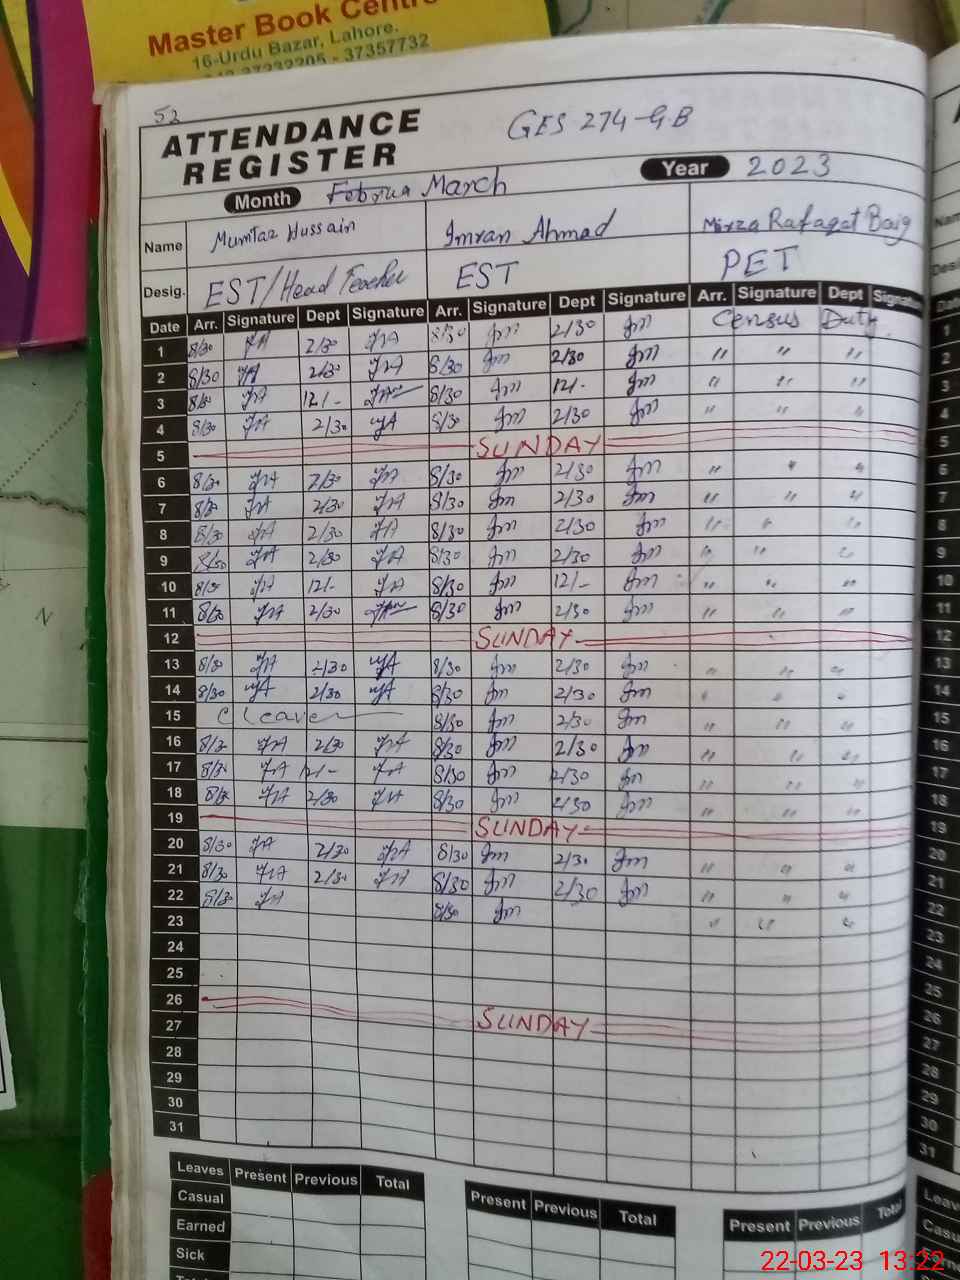 Master Book Centre
16-Urdu Bazar, Lahore.
042-37232205 - 37357732
52
ATTENDANCE REGISTER GES 274-GB
Month March Year 2023
Name Mumtaz Hussain Imran Ahmad Mirza Rafaqat Baig
Desig. EST/Head Teacher EST PET
Date Arr. Signature Dept Signature Arr. Signature Dept Signature Arr. Signature Dept Signature
1 8/30 2/30 8/30 2/30 Census Duty
2 8/30 2/30 8/30 2/30 " " "
3 8/30 12/- 8/30 12/- " " "
4 8/30 2/30 8/30 2/30 " " "
5 SUNDAY
6 8/30 2/30 8/30 2/30 " " "
7 8/30 2/30 8/30 2/30 " " "
8 8/30 2/30 8/30 2/30 " " "
9 8/30 2/30 8/30 2/30 " " "
10 8/30 12/- 8/30 12/- " " "
11 8/30 2/30 8/30 2/30 " " "
12 SUNDAY
13 8/30 2/30 8/30 2/30 " " "
14 8/30 2/30 8/30 2/30 " " "
15 C Leave 8/30 2/30 " " "
16 8/30 2/30 8/30 2/30 " " "
17 8/30 12/- 8/30 2/30 " " "
18 8/30 2/30 8/30 2/30 " " "
19 SUNDAY
20 8/30 2/30 8/30 2/30 " " "
21 8/30 2/30 8/30 2/30 " " "
22 8/30 8/30 " " "
23
24
25
26 SUNDAY
27
28
29
30
31
Leaves Present Previous Total Present Previous Total Present Previous Total
Casual
Earned
Sick
22-03-23 13:22